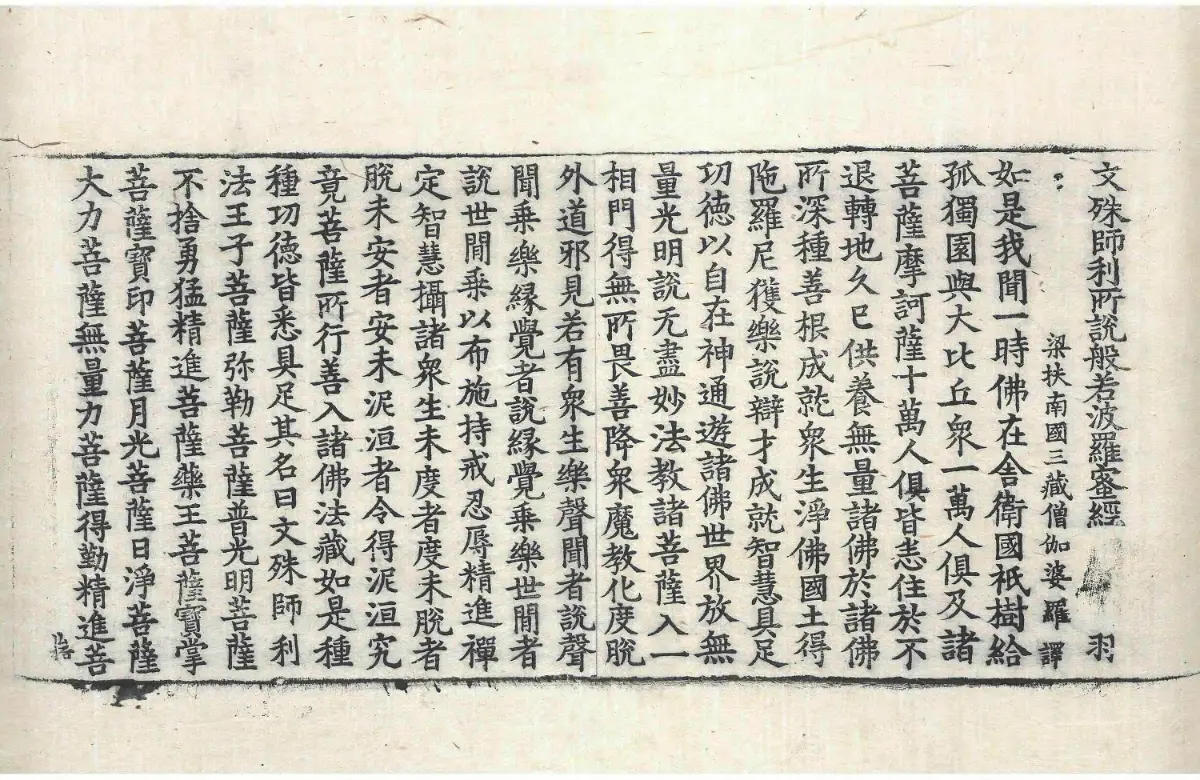 文殊師利所說般若波羅蜜經 羽
梁扶南國三藏僧伽婆羅 譯
如是我聞一時佛在舍衛國祇樹給
孤獨園與大比丘衆一萬人俱及諸
菩薩摩訶薩十萬人俱皆悉住於不
退轉地久已供養無量諸佛於諸佛
所深種善根成就衆生淨佛國土得
陁羅尼獲樂說辯才成就智慧具足
功德以自在神通遊諸佛世界放無
量光明說无盡妙法教諸菩薩入一
相門得無所畏善降衆魔教化度脫
外道邪見若有衆生樂聲聞者說聲
聞乗樂緣覺者說緣覺乗樂世間者
說世間乗以布施持戒忍辱精進禪
定智慧攝諸衆生未度者度未脫者
脫未安者安未泥洹者令得泥洹究
竟菩薩所行善入諸佛法藏如是種
種功德皆悉具足其名曰文殊師利
法王子菩薩弥勒菩薩普光明菩薩
不捨勇猛精進菩薩藥王菩薩寶掌
菩薩寶印菩薩月光菩薩日淨菩薩
大力菩薩無量力菩薩得勤精進菩